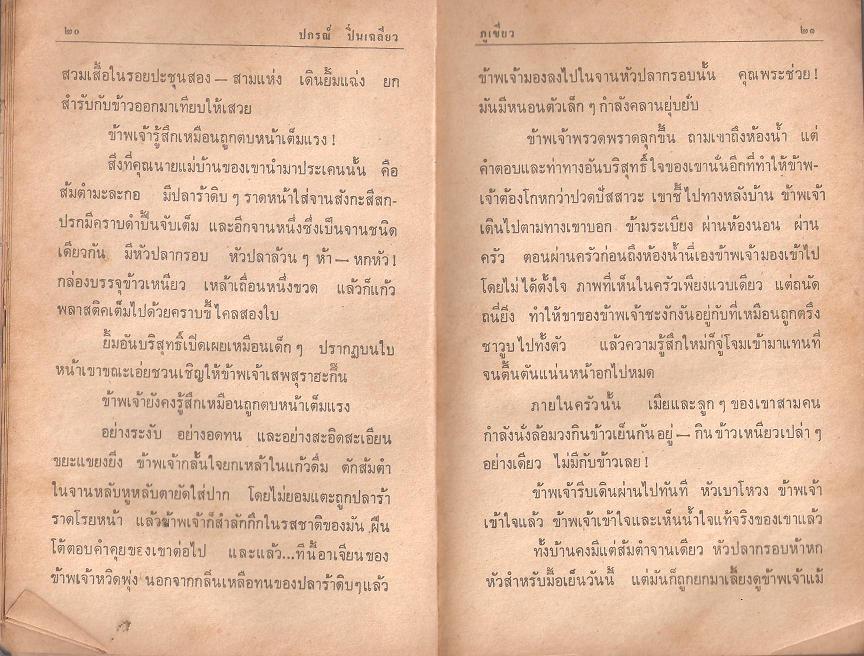 ๒๐ ปกรณ์ ปิ่นเฉลียว
สวมเสื้อในรอยปะชุนสอง — สามแห่ง เดินยิ้มแฉ่ง ยก
สำรับกับข้าวออกมาเทียบให้เสวย
ข้าพเจ้ารู้สึกเหมือนถูกตบหน้าเต็มแรง !
สิ่งที่คุณนายแม่บ้านของเขานำมาประเคนนั้น คือ
ส้มตำมะละกอ มีปลาร้าดิบ ๆ ราดหน้าใส่จานสังกะสีสก-
ปรกมีคราบดำปื้นจับเต็ม และอีกจานหนึ่งซึ่งเป็นจานชนิด
เดียวกัน มีหัวปลากรอบ หัวปลาล้วน ๆ ห้า — หกหัว !
กล่องบรรจุข้าวเหนียว เหล้าเถื่อนหนึ่งขวด แล้วก็แก้ว
พลาสติคเต็มไปด้วยคราบขี้ไคลสองใบ
ยิ้มอันบริสุทธิ์เปิดเผยเหมือนเด็ก ๆ ปรากฏบนใบ
หน้าเขาขณะเอ่ยชวนเชิญให้ข้าพเจ้าเสพสุราฮะกึ๊น
ข้าพเจ้ายังคงรู้สึกเหมือนถูกตบหน้าเต็มแรง
อย่างระงับ อย่างอดทน และอย่างสะอิดสะเอียน
ขยะแขยงยิ่ง ข้าพเจ้ากลั้นใจยกเหล้าในแก้วดื่ม ตักส้มตำ
ในจานหลับหูหลับตายัดใส่ปาก โดยไม่ยอมแตะถูกปลาร้า
ราดโรยหน้า แล้วข้าพเจ้าก็สำลักกึกในรสชาติของมัน ฝืน
โต้ตอบคำคุยของเขาต่อไป และแล้ว...ทีนี้อาเจียนของ
ข้าพเจ้าหวิดพุ่ง นอกจากกลิ่นเหลือทนของปลาร้าดิบๆแล้ว
ภูเขียว ๒๑
ข้าพเจ้ามองลงไปในจานหัวปลากรอบนั้น คุณพระช่วย !
มันมีหนอนตัวเล็ก ๆ กำลังคลานยุ่บยั่บ
ข้าพเจ้าพรวดพราดลุกขึ้น ถามเขาถึงห้องน้ำ แต่
คำตอบและท่าทางอันบริสุทธิ์ใจของเขานั่นอีกที่ทำให้ข้าพ-
เจ้าต้องโกหกว่าปวดปัสสาวะ เขาชี้ไปทางหลังบ้าน ข้าพเจ้า
เดินไปตามทางเขาบอก ข้ามระเบียง ผ่านห้องนอน ผ่าน
ครัว ตอนผ่านครัวก่อนถึงห้องน้ำนี่เองข้าพเจ้ามองเข้าไป
โดยไม่ได้ตั้งใจ ภาพที่เห็นในครัวเพียงแวบเดียว แต่ถนัด
ถนี่ยิ่ง ทำให้ขาของข้าพเจ้าชะงักงันอยู่กับที่เหมือนถูกตรึง
ชาวูบไปทั้งตัว แล้วความรู้สึกใหม่ก็จู่โจมเข้ามาแทนที่
จนตื้นตันแน่นหน้าอกไปหมด
ภายในครัวนั้น เมียและลูก ๆ ของเขาสามคน
กำลังนั่งล้อมวงกินข้าวเย็นกันอยู่ — กินข้าวเหนียวเปล่า ๆ
อย่างเดียว ไม่มีกับข้าวเลย !
ข้าพเจ้ารีบเดินผ่านไปทันที หัวเบาโหวง ข้าพเจ้า
เข้าใจแล้ว ข้าพเจ้าเข้าใจและเห็นน้ำใจแท้จริงของเขาแล้ว
ทั้งบ้านคงมีแต่ส้มตำจานเดียว หัวปลากรอบห้าหก
หัวสำหรับมื้อเย็นวันนี้ แต่มันก็ถูกยกมาเลี้ยงดูข้าพเจ้าแม้